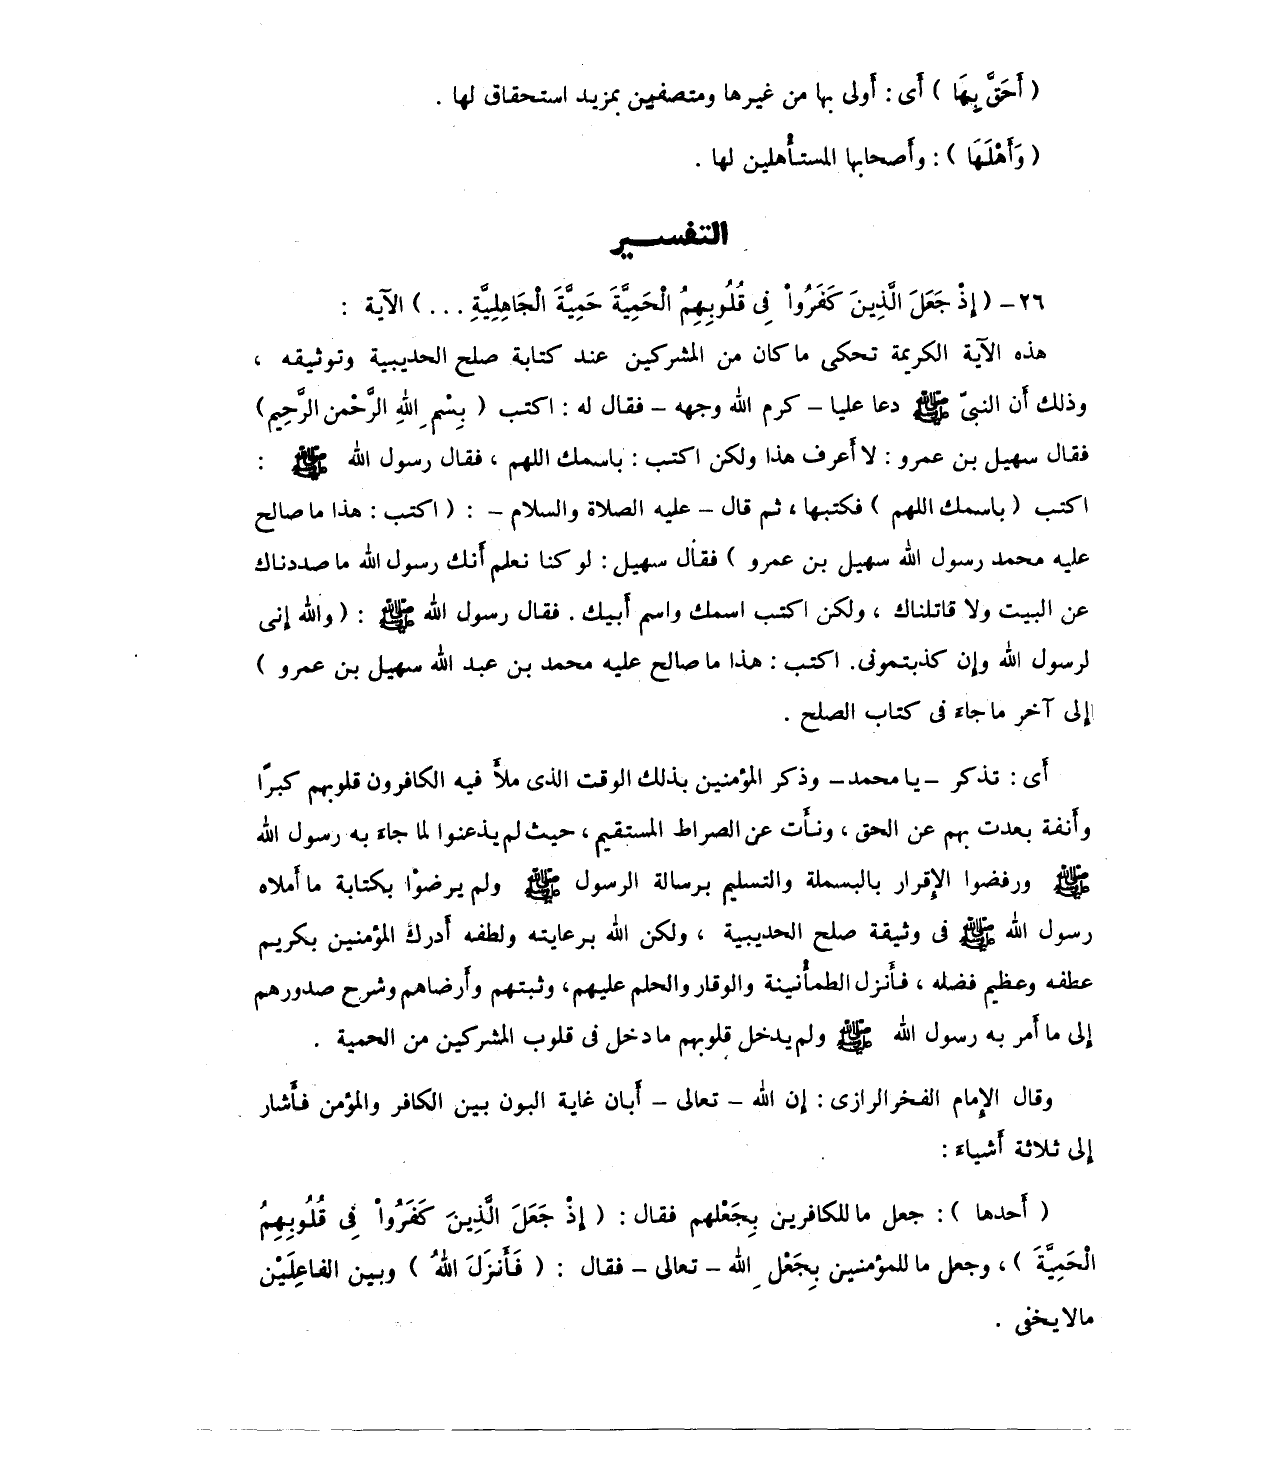 ( أَحَقَّ بِهَا ) أَى : أَولى بها من غيرها ومتصفين بمزيد استحقاق لها .
( وَأَهْلَهَا ) : وأَصحابها المستأْهلين لها .
التفسير
٢٦ – ( إِذْ جَعَلَ الَّذِينَ كَفَرُواْ فِى قُلُوبِهِمُ الْحَمِيَّةَ حَمِيَّةَ الْجَاهِلِيَّةِ ... ) الآية :
هذه الآية الكريمة تحكى ما كان من المشركين عند كتابة صلح الحديبية وتوثيقه ،
وذلك أَن النبىّ ﷺ دعا عليا – كرم الله وجهه – فقال له : اكتب ( بِسْمِ اللهِ الرَّحْمن الرَّحِيم )
فقال سهيل بن عمرو : لا أَعرف هذا ولكن اكتب : باسمك اللهم ، فقال رسول الله ﷺ :
اكتب ( باسمك اللهم ) فكتبها ، ثم قال – عليه الصلاة والسلام – : ( اكتب : هذا ما صالح
عليه محمد رسول الله سهيل بن عمرو ) فقال سهيل : لو كنا نعلم أَنك رسول الله ما صددناك
عن البيت ولا قاتلناك ، ولكن اكتب اسمك واسم أَبيك . فقال رسول الله ﷺ : ( والله إِنى
لرسول الله وإِن كذبتمونى . اكتب : هذا ما صالح عليه محمد بن عبد الله سهيل بن عمرو )
إِلى آخر ما جاء فى كتاب الصلح .
أَى : تذكر – يا محمد – وذكر المؤمنين بذلك الوقت الذى ملأَ فيه الكافرون قلوبهم كبرًا
وأَنفة بعدت بهم عن الحق ، ونأَت عن الصراط المستقيم ، حيث لم يذعنوا لما جاء به رسول الله
ﷺ ورفضوا الإِقرار بالبسملة والتسليم برسالة الرسول ﷺ ولم يرضوْا بكتابة ما أَملاه
رسول الله ﷺ فى وثيقة صلح الحديبية ، ولكن الله برعايته ولطفه أَدرك المؤمنين بكريم
عطفه وعظيم فضله ، فأَنزل الطمأْنينة والوقار والحلم عليهم ، وثبتهم وأَرضاهم وشرح صدورهم
إِلى ما أَمر به رسول الله ﷺ ولم يدخل قلوبهم ما دخل فى قلوب المشركين من الحمية .
وقال الإِمام الفخر الرازى : إِن الله – تعالى – أَبان غاية البون بين الكافر والمؤمن فأَشار
إِلى ثلاثة أَشياء :
( أَحدها ) : جعل ما للكافرين بِجَعْلهم فقال : ( إِذْ جَعَلَ الَّذِينَ كَفَرُواْ فِى قُلُوبِهِمُ
الْحَمِيَّةَ ) ، وجعل ما للمؤمنين بِجَعْلِ الله – تعالى – فقال : ( فَأَنزَلَ اللهُ ) وبين الفاعِلَيْن
مالا يخفى .